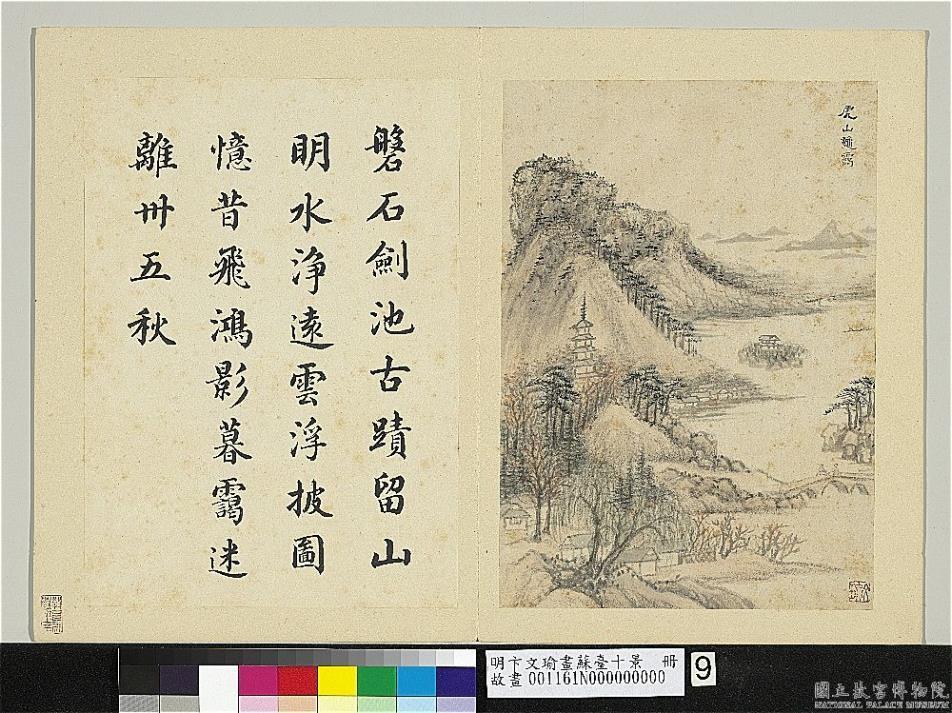 虎山
磐石劍池古蹟留山
明水淨遠雲浮披圖
憶昔飛鴻影暮靄迷
離卅五秋
明卞文瑜畫蘇臺十景 冊
故畫001161N000000000
9
國立故宮博物院
NATIONAL PALACE MUSEUM